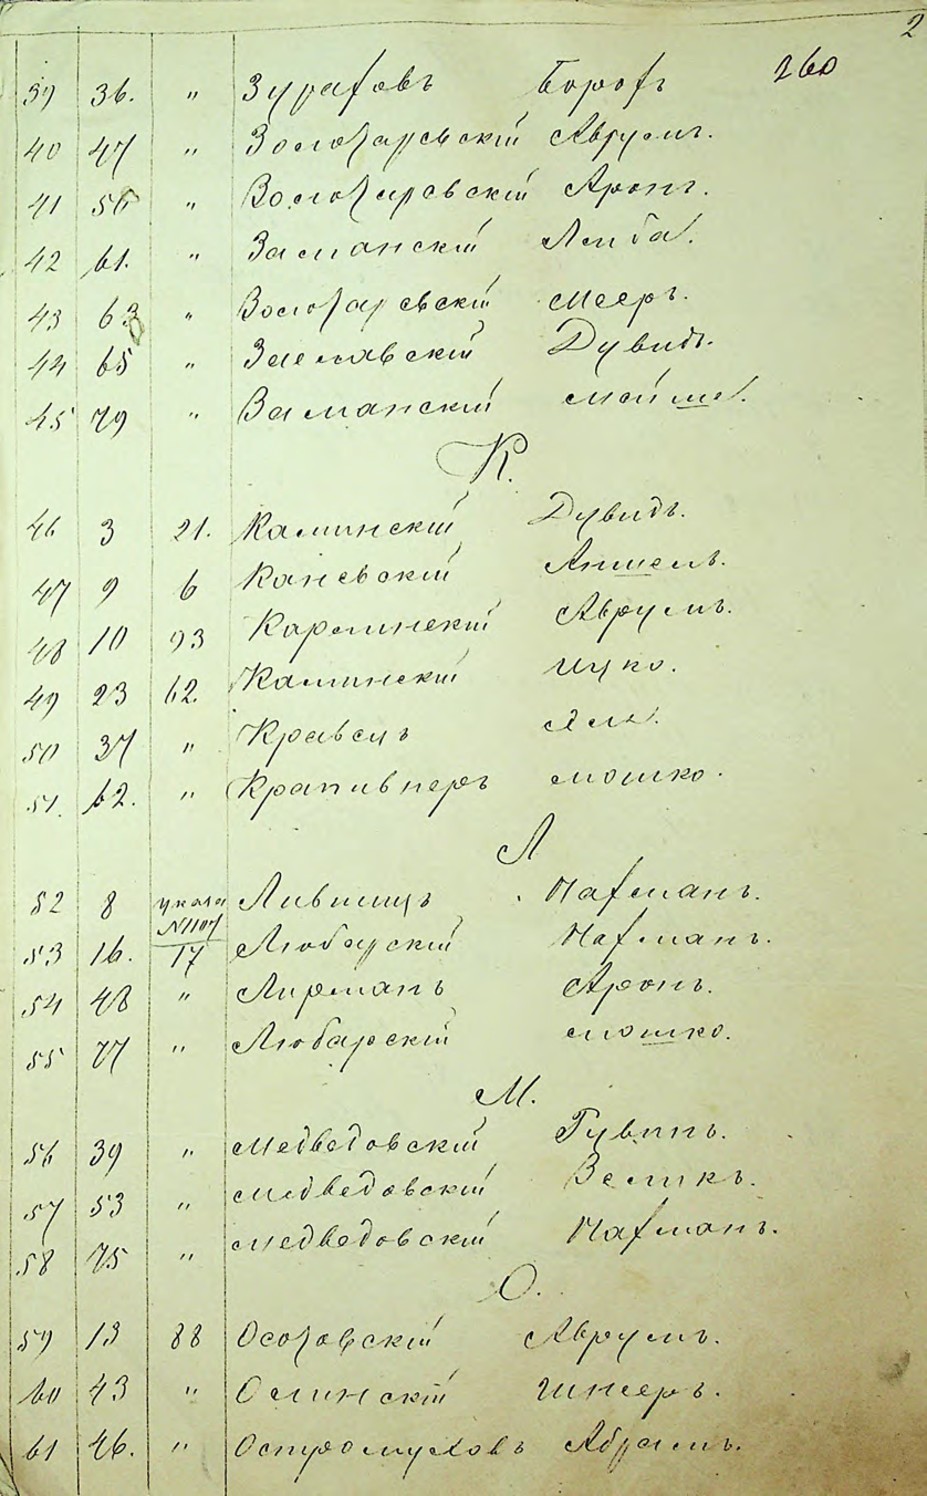 2
260
39 36. " Зурахов ъ Борох ъ
40 47 " Золотаревскій Аврумъ.
41 56 " Золотаревскій Аронъ.
42 61. " Заманскій Лейба.
43 63 " Золотаревскій Мееръ.
44 65 " Заславскій Дувидъ.
45 79 " Заманскій Мойше.
К.
46 3 21. Каминскій Дувидъ.
47 9 6 Каневскій Аншель.
48 10 93 Карлинскій Аврумъ.
49 23 62. Каминскій Ицко.
50 37 " Кравецъ
51. 62. " Крапивнеръ Мошко.
Л
52 8 указа №1107 Лившицъ Нахманъ.
53 16. 17 Любарскій Нахманъ.
54 48 " Лирманъ Аронъ.
55 77 " Любарскій Мошко.
М.
56 39 " Медведовскій Рувинъ.
57 53 " Медведовскій Велькъ.
58 75 " Медведовскій Нахманъ.
О.
59 13 88 Осотовскій Аврумъ.
60 43 " Олинскій Шнееръ.
61 46. " Остромуховъ Абрамъ.